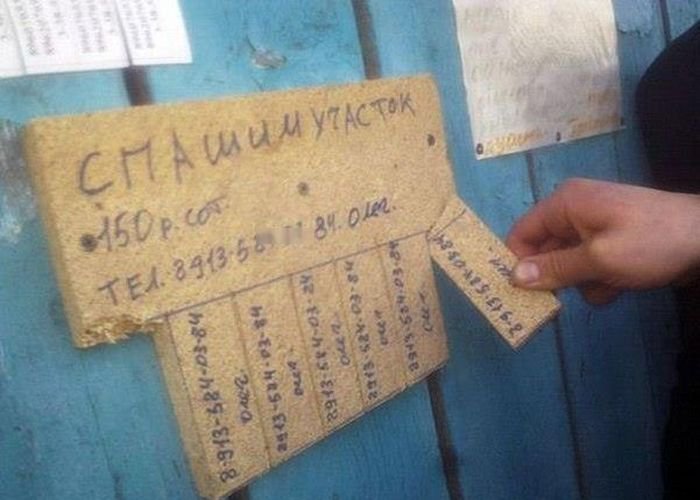 СПАШИМ УЧАСТОК
150 р. сот.
ТЕЛ. 8913-58 84. Олег.
8-913-584-03-84
Олег
8913-584-03-84
Олег
8913-584-03-84
Олег
8913-584-03-84
Олег
8913-584-03-84
Олег
8-913-584-03-84
Олег